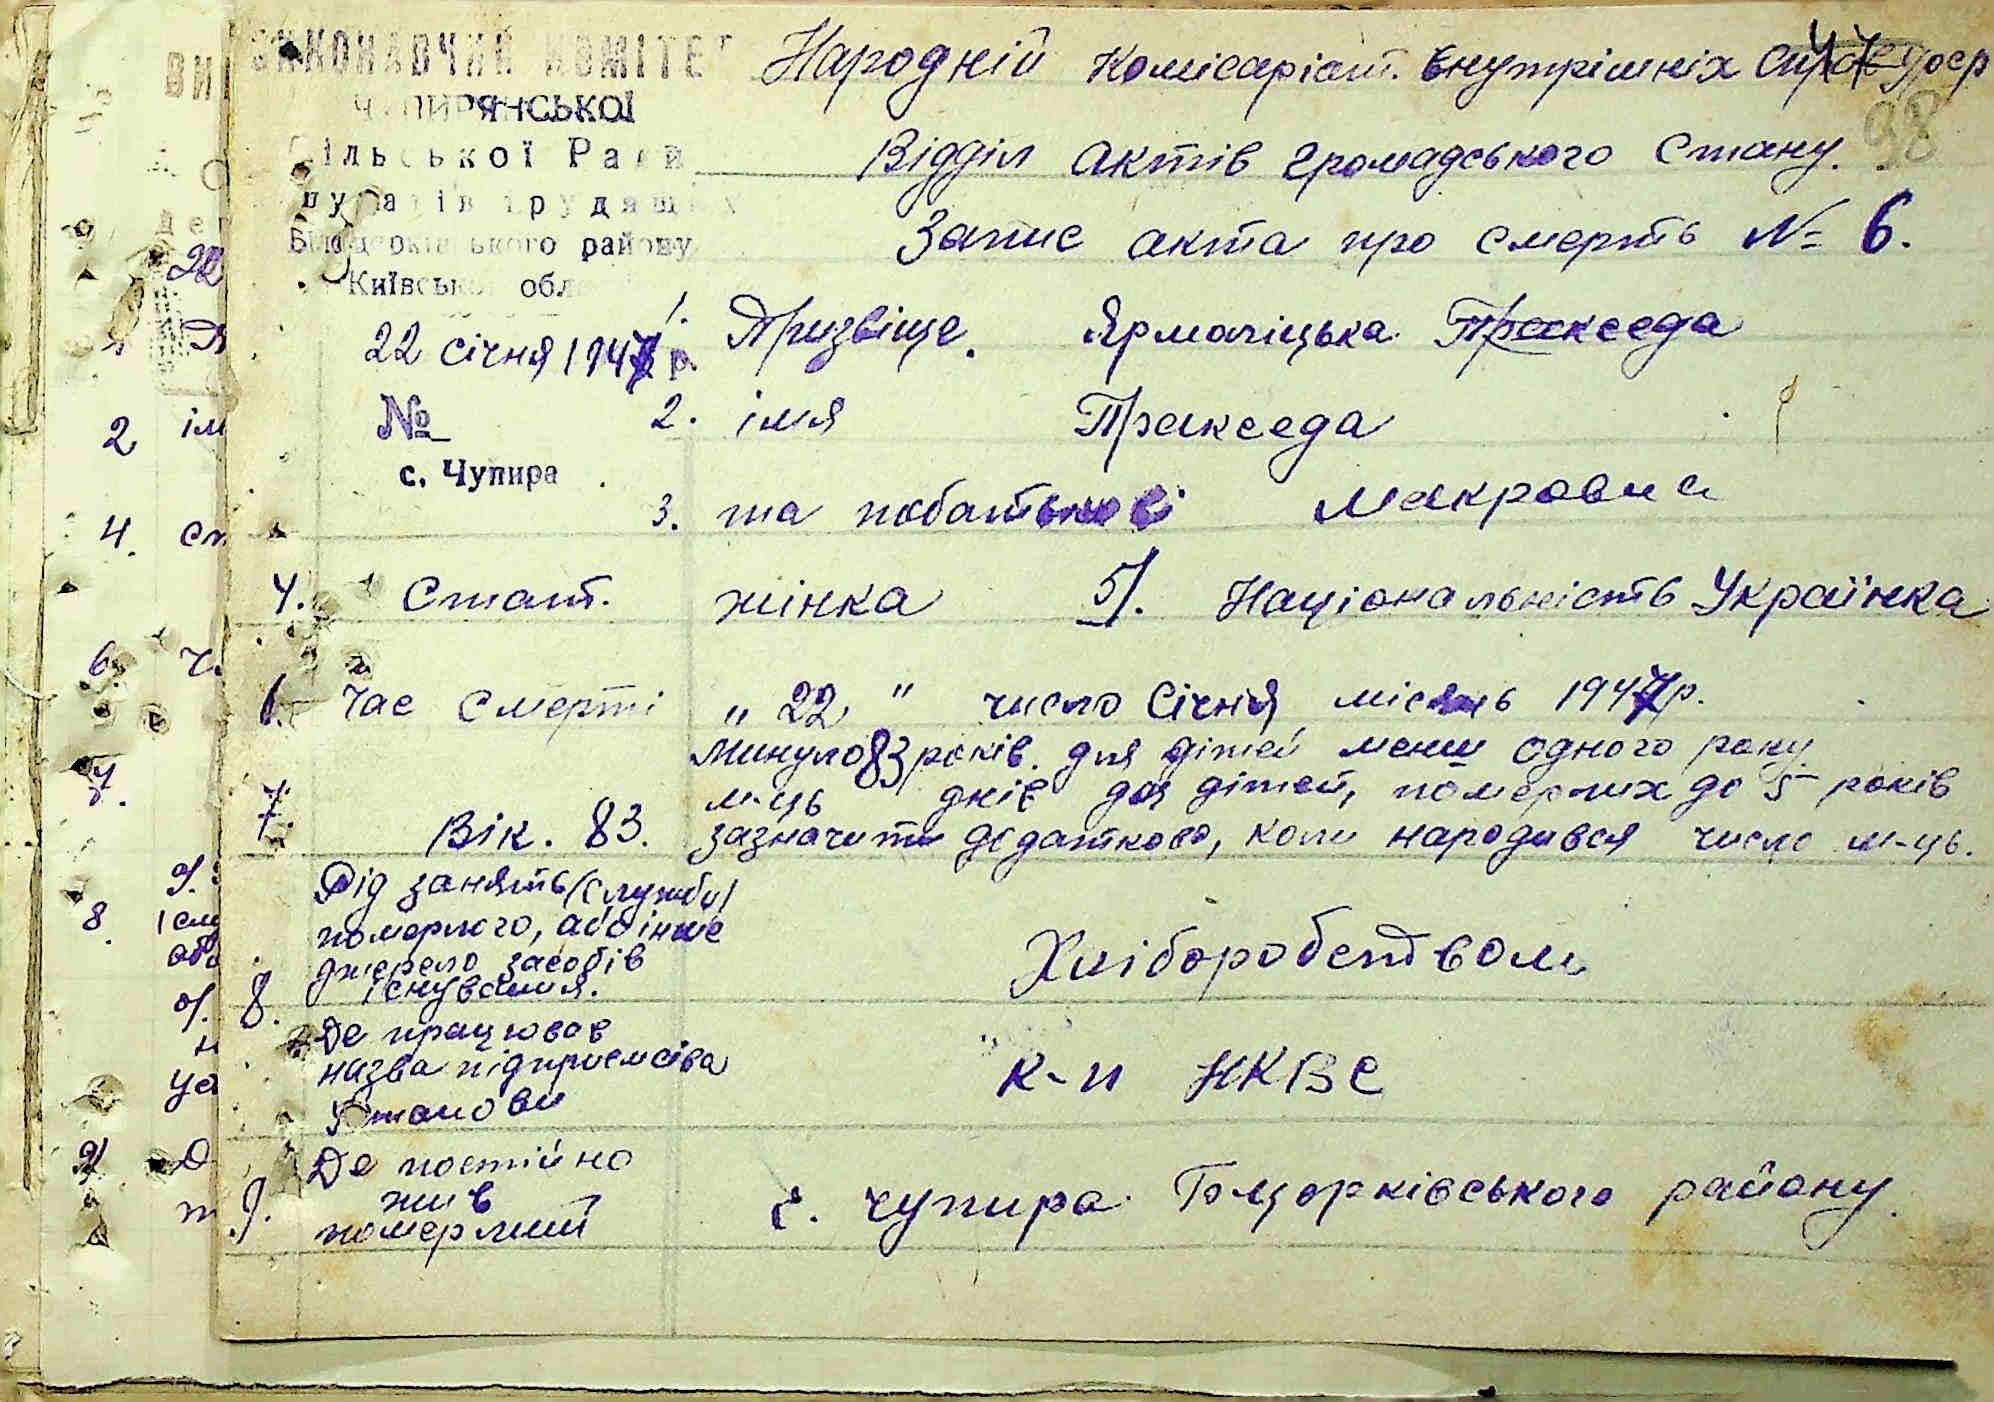 ВИКОНАВЧИЙ КОМІТЕТ
ЧУПИРЯНСЬКОЇ
Сільської Ради
депутатів трудящих
Білоцерківського району
Київської обл.
22 січня 1947 р.
№
с. Чупира
Народній Комісаріат. Внутрішніх Справ УРСР
98
Відділ актів громадського стану.
Запис акта про смерть № 6.
1. Призвіще. Ярмоліцька Пракседа
2. імя Пракседа
3. та побатькові Макровна
4. Стат. жінка 5/. Національність Українка
6. Час смерті „22" число Січня місяць 1947р.
Минуло 83 років. для дітей менш одного року
м-ць днів для дітей, померлих до 5 років
7. Вік. 83. зазначити додатково, коли народився число м-ць.
Рід занять (служби)
померлого, або інше
джерело засобів
8. існування. Хліборобством
Де працював
назва підприємсва К-п НКВС
Установи
Де постійно
жив
9. померлий с. Чупира Білцерківського району.